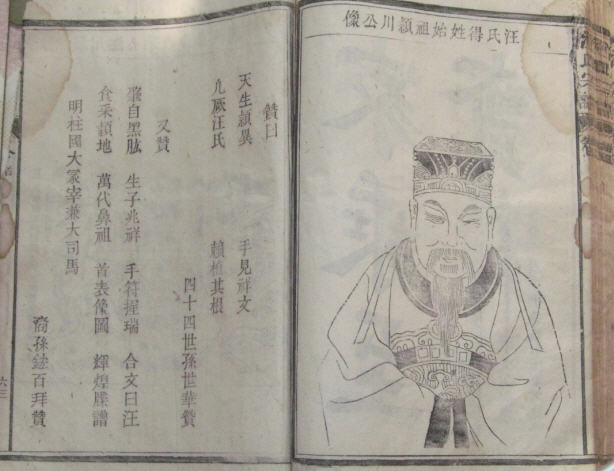 汪氏得姓始祖潁川公像
贊曰
天生潁異 手見祥文
凡厥汪氏 賴植其根
四十四世孫世華贊
又贊
發自黑肱 生子兆祥 手符握瑞 合文曰汪
食采潁地 萬代鼻祖 首表像圖 輝煌牒譜
明柱國大冡宰兼大司馬
裔孫鋐百拜贊
六三